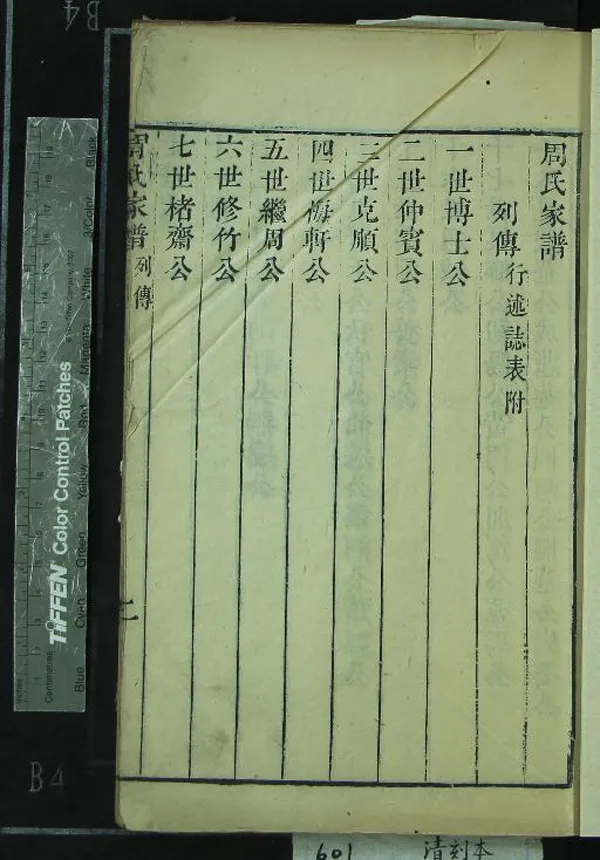 周氏家譜
列傳行述誌表附
一世博士公
二世仲賓公
三世克順公
四世梅軒公
五世繼周公
六世修竹公
七世楮齋公
周氏家譜 列傳
B4
B4
TIFFEN Color Control Patches
Centimetres
Inches
Blue
Cyan
Green
Yellow
Red
Magenta
White
3/Color
Black
601 清刻本